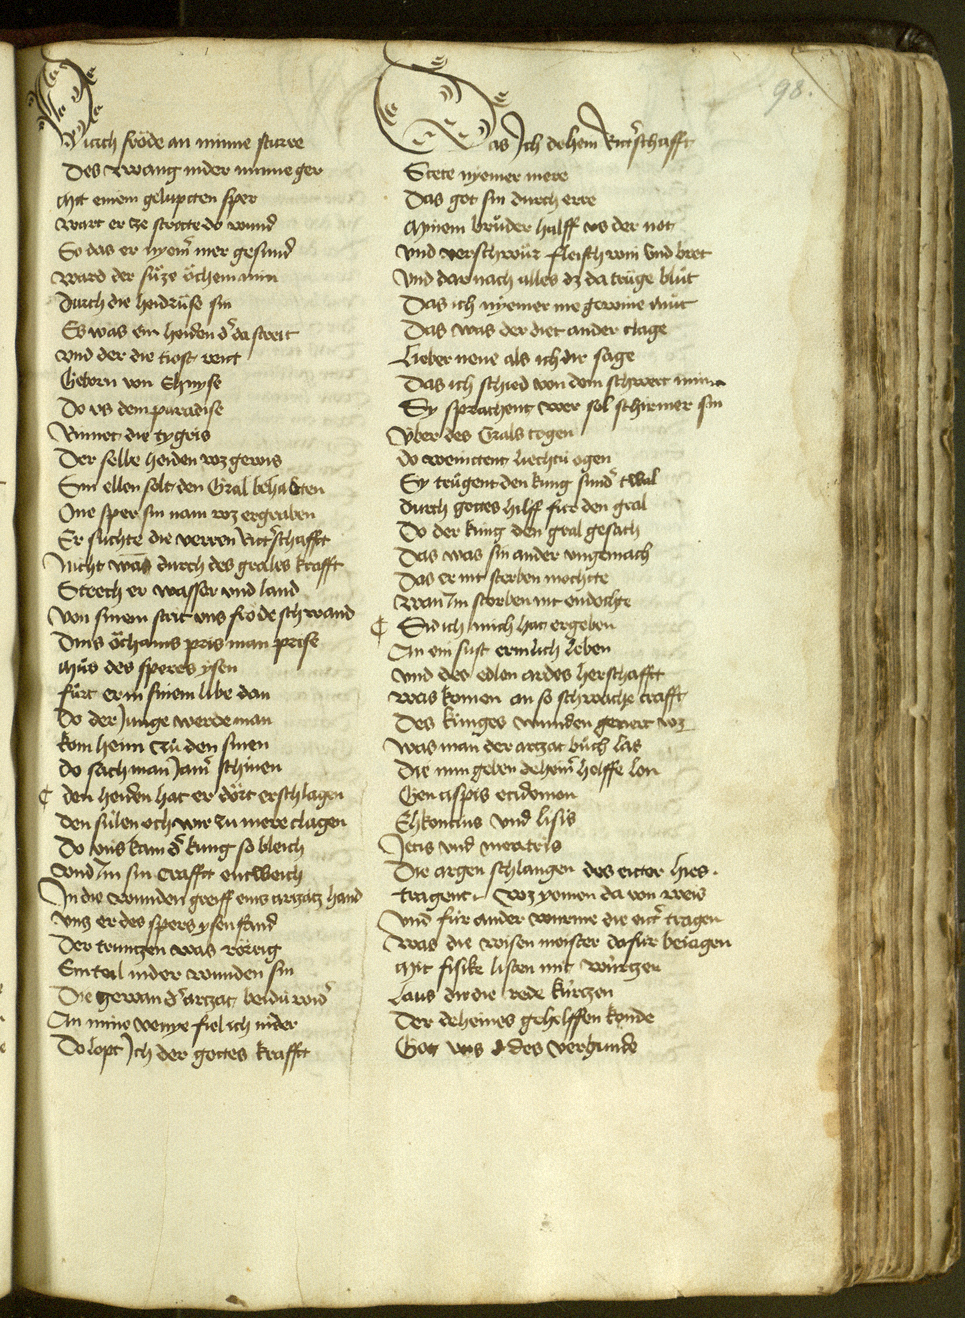 98.
Durch fröde an minne sture
Des twang in der minne ger
Mit einem gelupten sper
Wart er ze strite do wund
So das er nyemer mer gesund
Ward der süze öchem min
Durch die heidrüse sin
Es was ein heiden der da streit
Und der die tiost reit
Geborn von Ethnyse
Do us dem paradise
Rinnet die tygris
Der selbe heiden wz gewis
Sin ellen solt den Gral behabten
Jne sper sin nam wz ergraben
Er suchte die verren Ritterschafft
Nicht wan durch des grales krafft
Streich er wasser und land
Von sinem strit uns fröde schwand
Dins öchams pris man prise
Mus des speres ysen
furt er in sinem libe dan
Do der Junge werde man
kom heim zu den sinen
do sach man Jamer schinen
den heiden hat er dort erschlagen
den sülen och wir zu mere clagen
Do uns kam der kung so bleich
Vnd Im sin crafft entweich
In die wunden greiff eins artzatz hand
Vntz er des spers ysen fand
Der trunzen was rörrig
Ein teil in der wunden sin
Die gewan der artzat beidu wider
An mine venye fiel ich nider
Do lopt Ich der gottes krafft
Das Ich dehein Ritterschafft
Stete nyemer mere
Das got sin durch erre
Minem bruder hulff us der not
Vnd verschwur fleisch win Und brot
Vnd dar nach alles dz da truge blut
Das ich nyemer me gewine mut
Das was der diet ander clage
Lieber neue als ich dir sage
Das ich schied von dem schwert min
Sy sprachent wer sol schirmer sin
Vber des Grals togen
do weintent liechti ogen
Sy trugent den kung sunder twal
durch gottes hilff fur den gral
Do der kung den gral gesach
Das was sin ander ungemach
Das er nit sterben mochte
Wan Im sterben nit endochte
Sid ich mich hat ergeben
An ein sust ermlich leben
Vnd des edlen ardes herschafft
Was komen an so schwache crafft
Des künges wunden geitert wz
Was man der artzat buch las
Die nun geben dehein helffe lon
Gen aspis ecidemon
Ehkontius Und lisis
Jecis und meatris
Die argen schlangen des eiter hies
tragent wz yemen da von weis
Vnd für ander wurme die eiter tragen
Was die wisen meister dafur beiagen
Mit fisike listen mit würtzen
Laus dir die rede kürtzen
Der deheines gehelffen konde
Got uns des verbunde